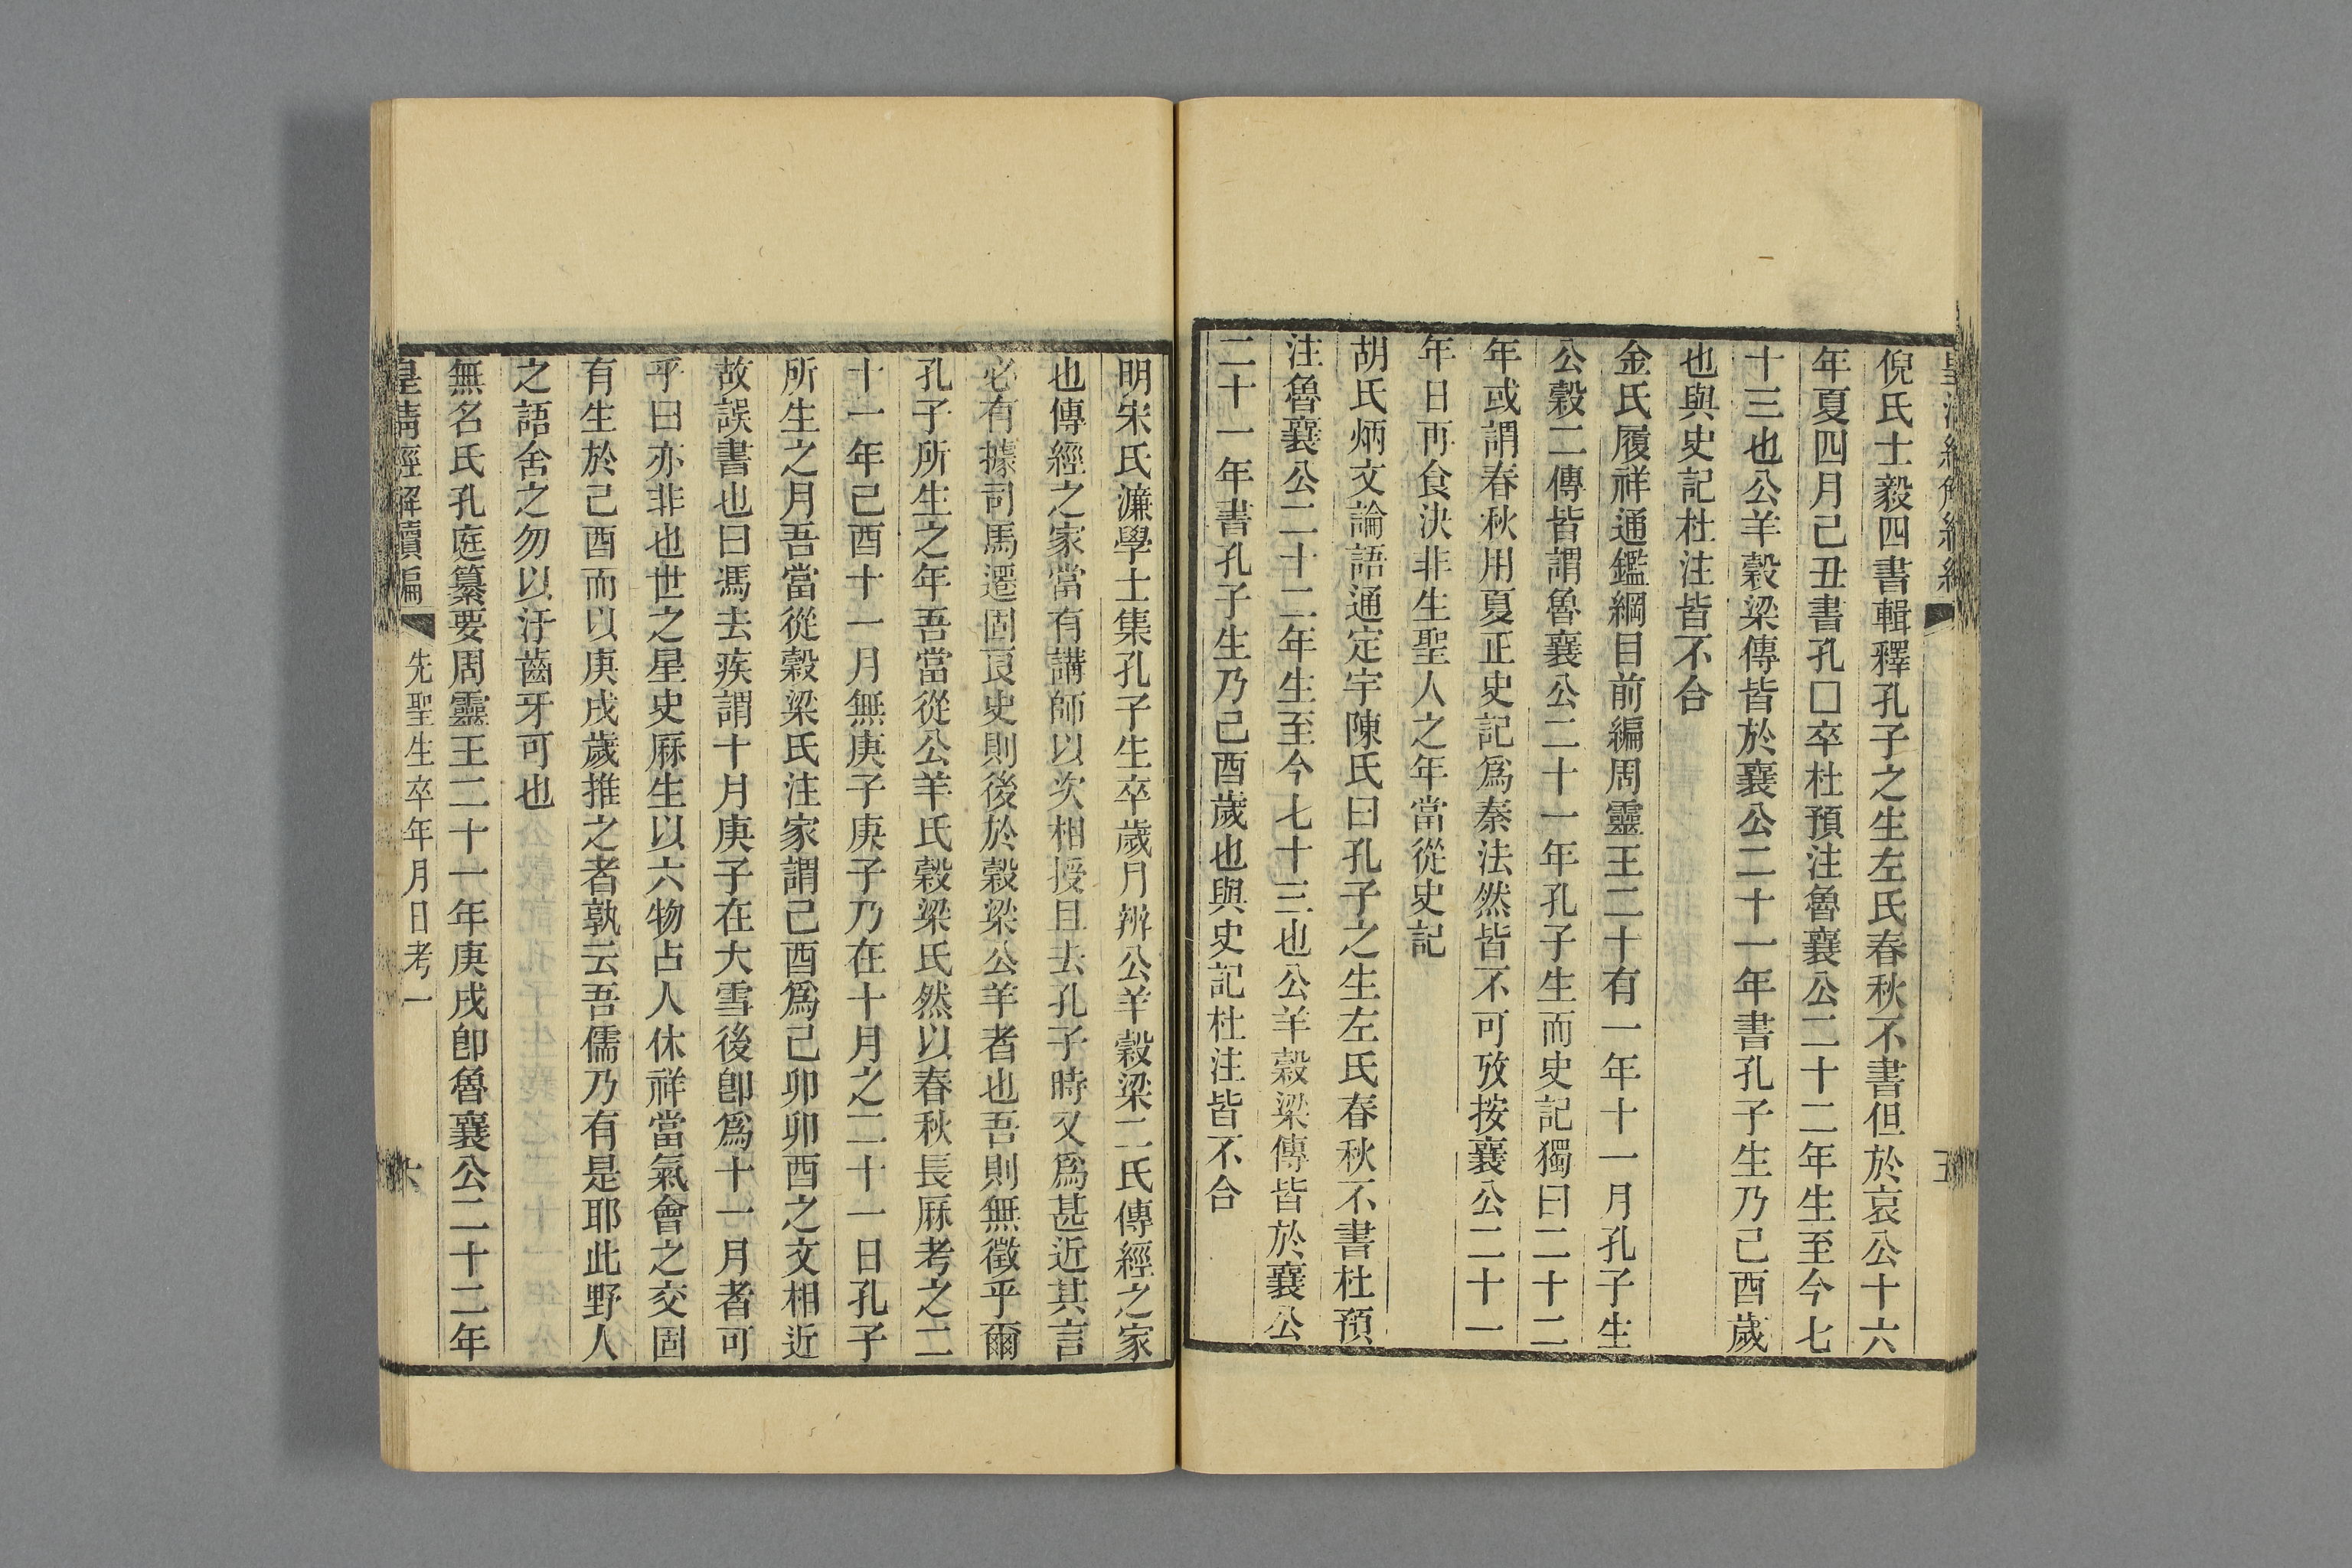 倪氏士毅四書輯釋孔子之生左氏春秋不書但於哀公十六
年夏四月己丑書孔囗卒杜預注魯襄公二十二年生至今七
十三也公羊穀梁傳皆於襄公二十一年書孔子生乃己酉歲
也與史記杜注皆不合
金氏履祥通鑑綱目前編周靈王二十有一年十一月孔子生
公穀二傳皆謂魯襄公二十一年孔子生而史記獨曰二十二
年或謂春秋用夏正史記爲秦法然皆不可攷按襄公二十一
年日再食決非生聖人之年當從史記
胡氏炳文論語通定宇陳氏曰孔子之生左氏春秋不書杜預
注魯襄公二十二年生至今七十三也公羊穀梁傳皆於襄公
二十一年書孔子生乃己酉歲也與史記杜注皆不合
明宋氏濂學士集孔子生卒歲月辨公羊穀梁二氏傳經之家
也傳經之家當有講師以次相授且去孔子時又爲甚近其言
必有據司馬遷固良史則後於穀梁公羊者也吾則無徵乎爾
孔子所生之年吾當從公羊氏穀梁氏然以春秋長厤考之二
十一年己酉十一月無庚子庚子乃在十月之二十一日孔子
所生之月吾當從穀梁氏注家謂己酉爲己卯卯酉之文相近
故誤書也曰馮去疾謂十月庚子在大雪後卽爲十一月者可
乎曰亦非也世之星史厤生以六物占人休祥當氣會之交固
有生於己酉而以庚戌歲推之者孰云吾儒乃有是耶此野人
之語舍之勿以汙齒牙可也
無名氏孔庭纂要周靈王二十一年庚戌卽魯襄公二十二年
皇清經解續編 先聖生卒年月日考一 六